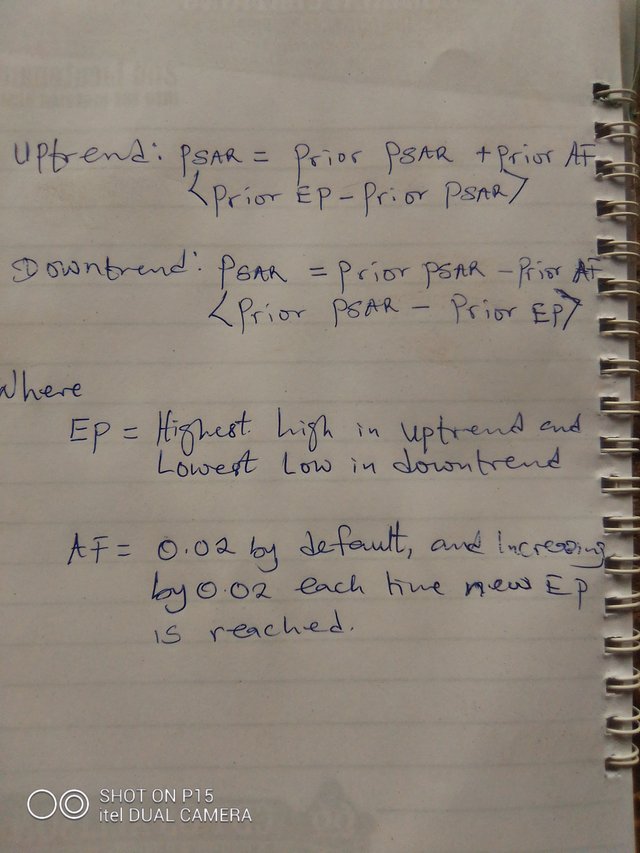 Uptrend: PSAR = Prior PSAR + Prior AF
<Prior EP - Prior PSAR>
Downtrend: PSAR = Prior PSAR - Prior AF
<Prior PSAR - Prior EP>
Where
EP = Highest high in uptrend and
Lowest Low in downtrend
AF = 0.02 by default, and increasing
by 0.02 each time new EP
is reached.
SHOT ON P15
itel DUAL CAMERA